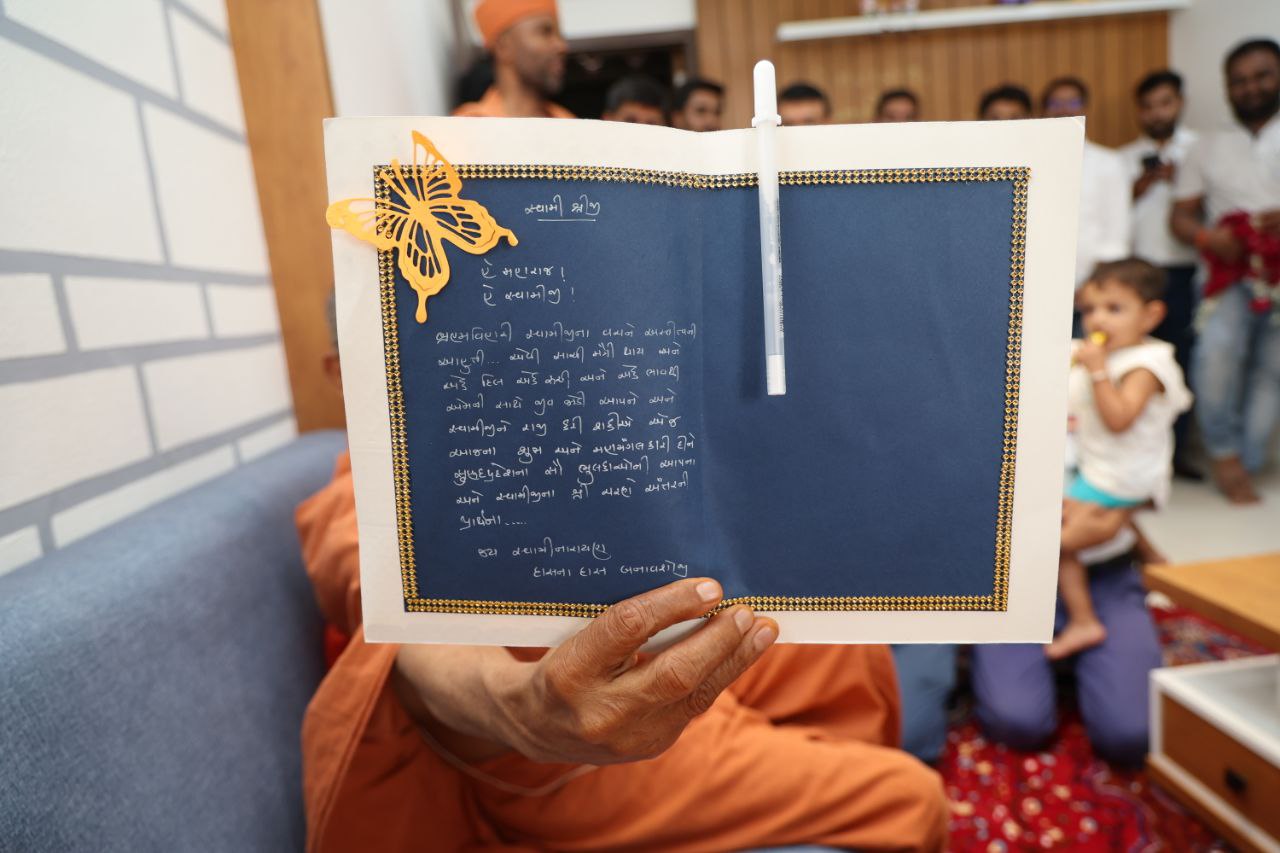 સ્વામી શ્રીજી
હે મહારાજ !
હે સ્વામીજી !
બ્રહ્મવિહારી સ્વામીજીના વચને અસ્તિત્વની
આહુતી... એવી સાચી મૈત્રી થાય અને
એકે દિલ એકે રુચી અને એકે ભાવથી
એમની સાથે જીવ જોડી આપને અને
સ્વામીજીને રાજી કરી શકીએ એજ
આજના શુભ અને મહામંગલકારી દીને
સુહૃદપ્રદેશના સૌ ભુલકાંઓની આપના
અને સ્વામીજીના શ્રી ચરણે અંતરની
પ્રાર્થના.....
જય સ્વામીનારાયણ
દાસના દાસ બનાવશોજી